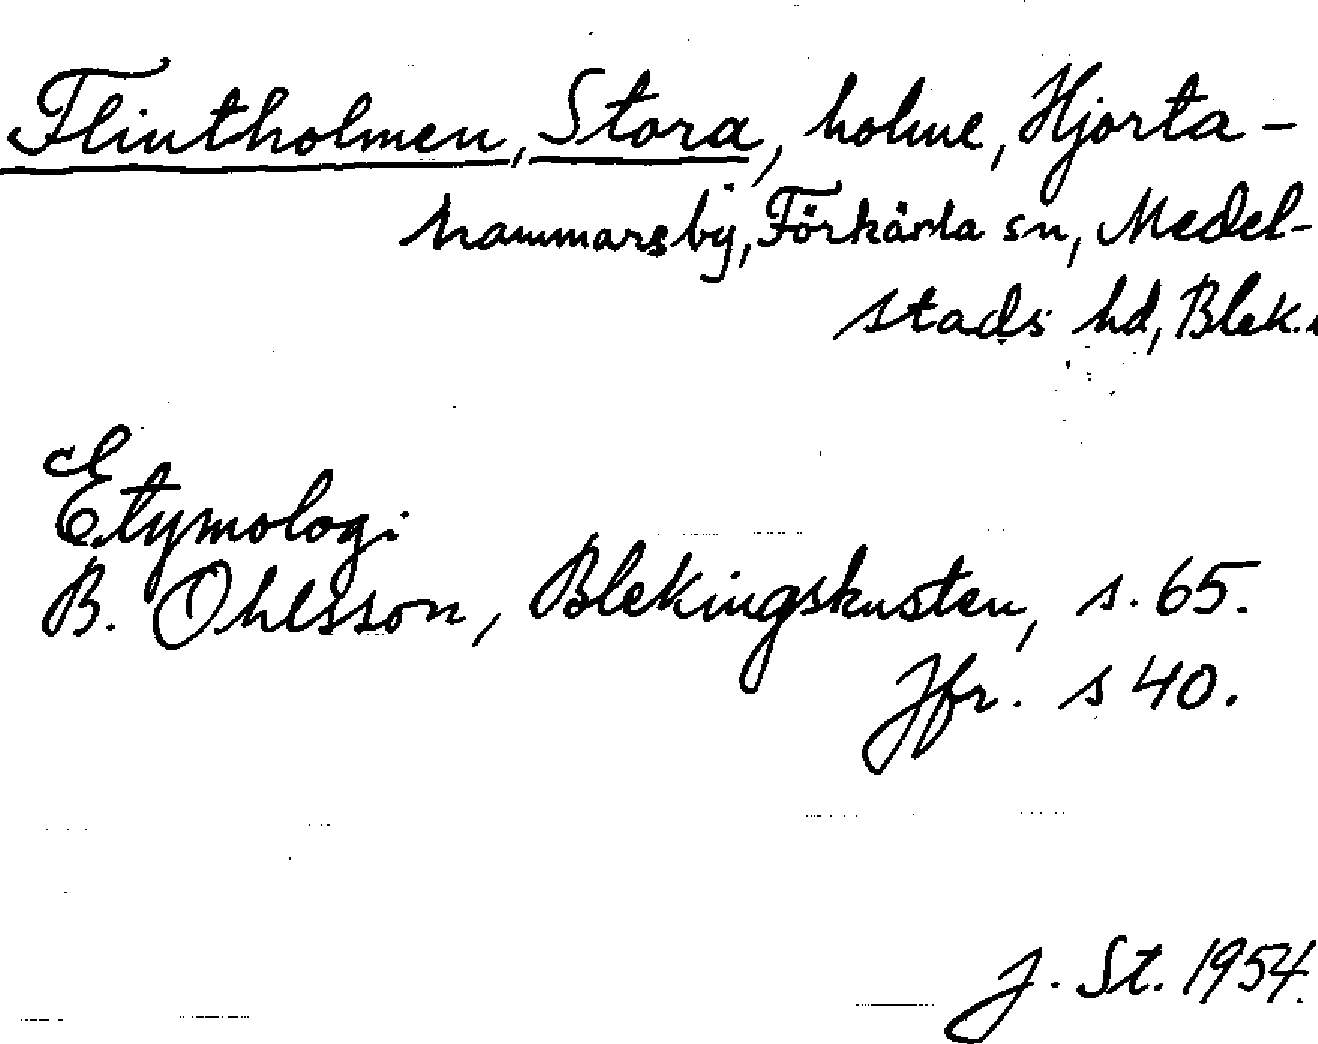 Flintholmen, Stora, holme, Hjorta-
hammars by, Förkärla sn, Medel-
stads hd, Blek.
Etymologi
B. Ohlsson, Blekingskusten, s. 65.
Jfr. s 40.
J. St. 1954.